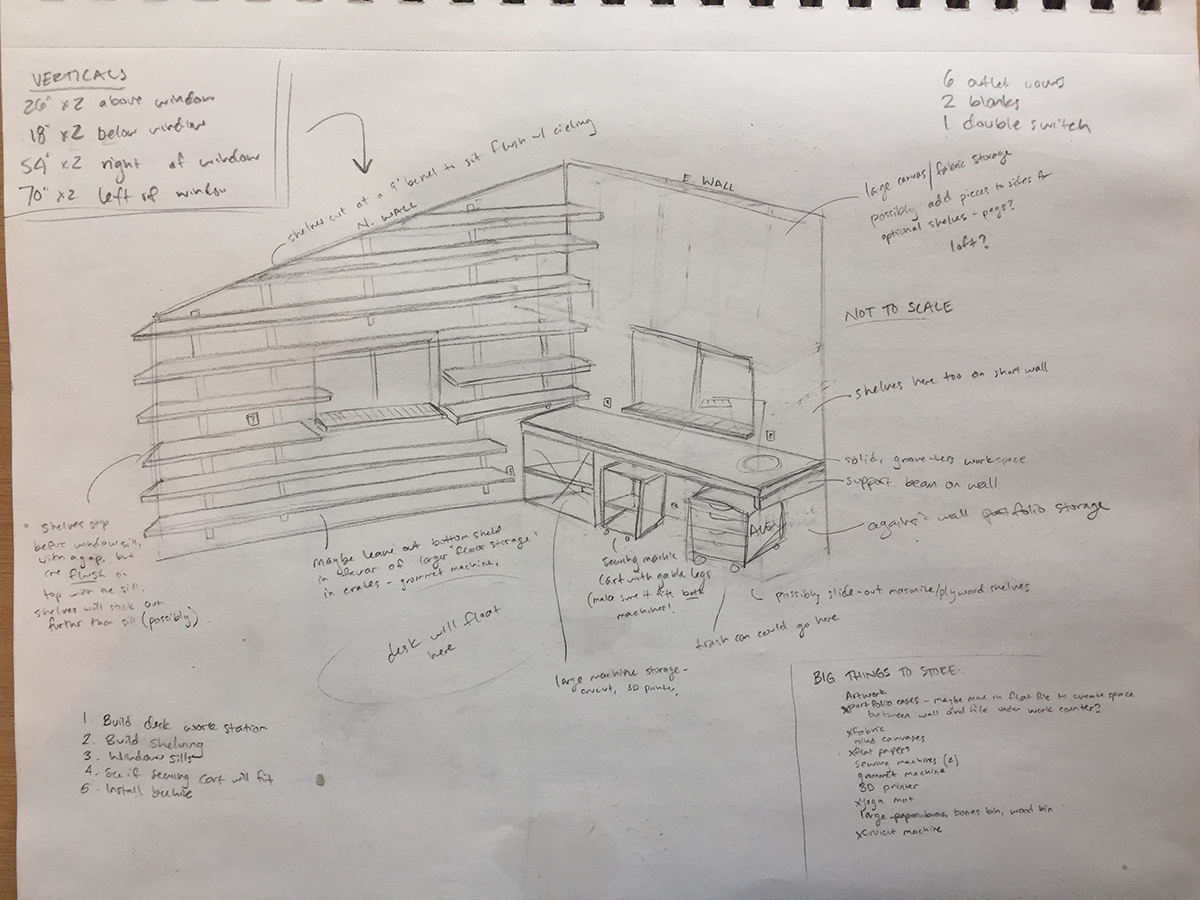 VERTICALS
26" x2 above window
18" x2 below window
54" x2 right of window
70" x2 left of window
6 outlet covers
2 blanks
1 double switch
shelves cut at a 9° bevel to sit flush w/ cieling
N. WALL
E. WALL
large canvas/fabric storage
possibly add pieces to sides for
optional shelves - pegs?
loft?
NOT TO SCALE
shelves here too on short wall
solid, groove-less workspace
support beam on wall
against wall portfolio storage
ALEX
possibly slide-out masonite/plywood shelves
trash can could go here
sewing machine
cart with gable legs
(make sure it fits both
machines!
large machine storage -
cricut, 3D printer,
maybe leave out bottom shelf
in favor of larger "floor storage"
in crates - grommet machine,
desk will float
here
* shelves stop
before window sill,
with a gap, but
are flush on
top with the sill.
shelves will stick out
further than sill (possibly).
1. Build desk work station
2. Build shelving
3. Window sills
4. See if sewing cart will fit
5. Install beehive
BIG THINGS TO STORE:
Artwork
x portfolio cases - maybe move in flat file to create space
between wall and file under work counter?
x fabric
canvases
x flat papers
sewing machines (2)
grommet machine
3D printer
x yoga mat
large paper bins, bones bin, wood bin
x cruicut machine